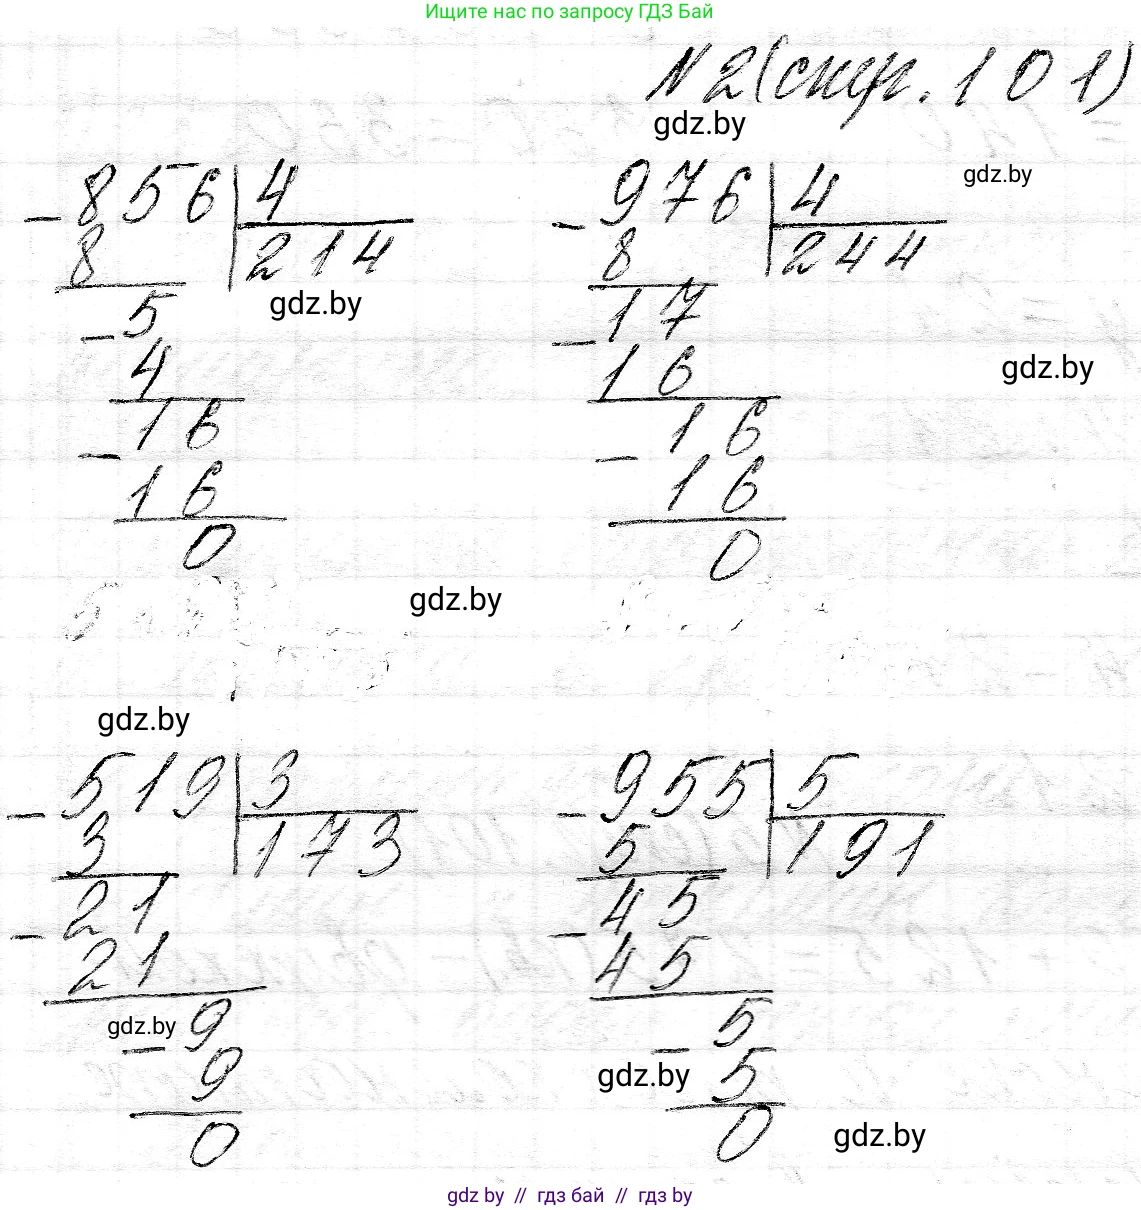 Ищите нас по запросу ГДЗ Бай
N2(стр. 101)
gdz.by
gdz.by
- 856 | 4
8 | 214
gdz.by
- 5
4
- 16
16
0
- 976 | 4
8 | 244
- 17
16
gdz.by
- 16
16
0
gdz.by
gdz.by
- 519 | 3
3 | 173
- 21
21
gdz.by
- 9
9
0
- 955 | 5
5 | 191
- 45
45
- 5
gdz.by
5
0
gdz.by
gdz by // гдз бай // гдз by